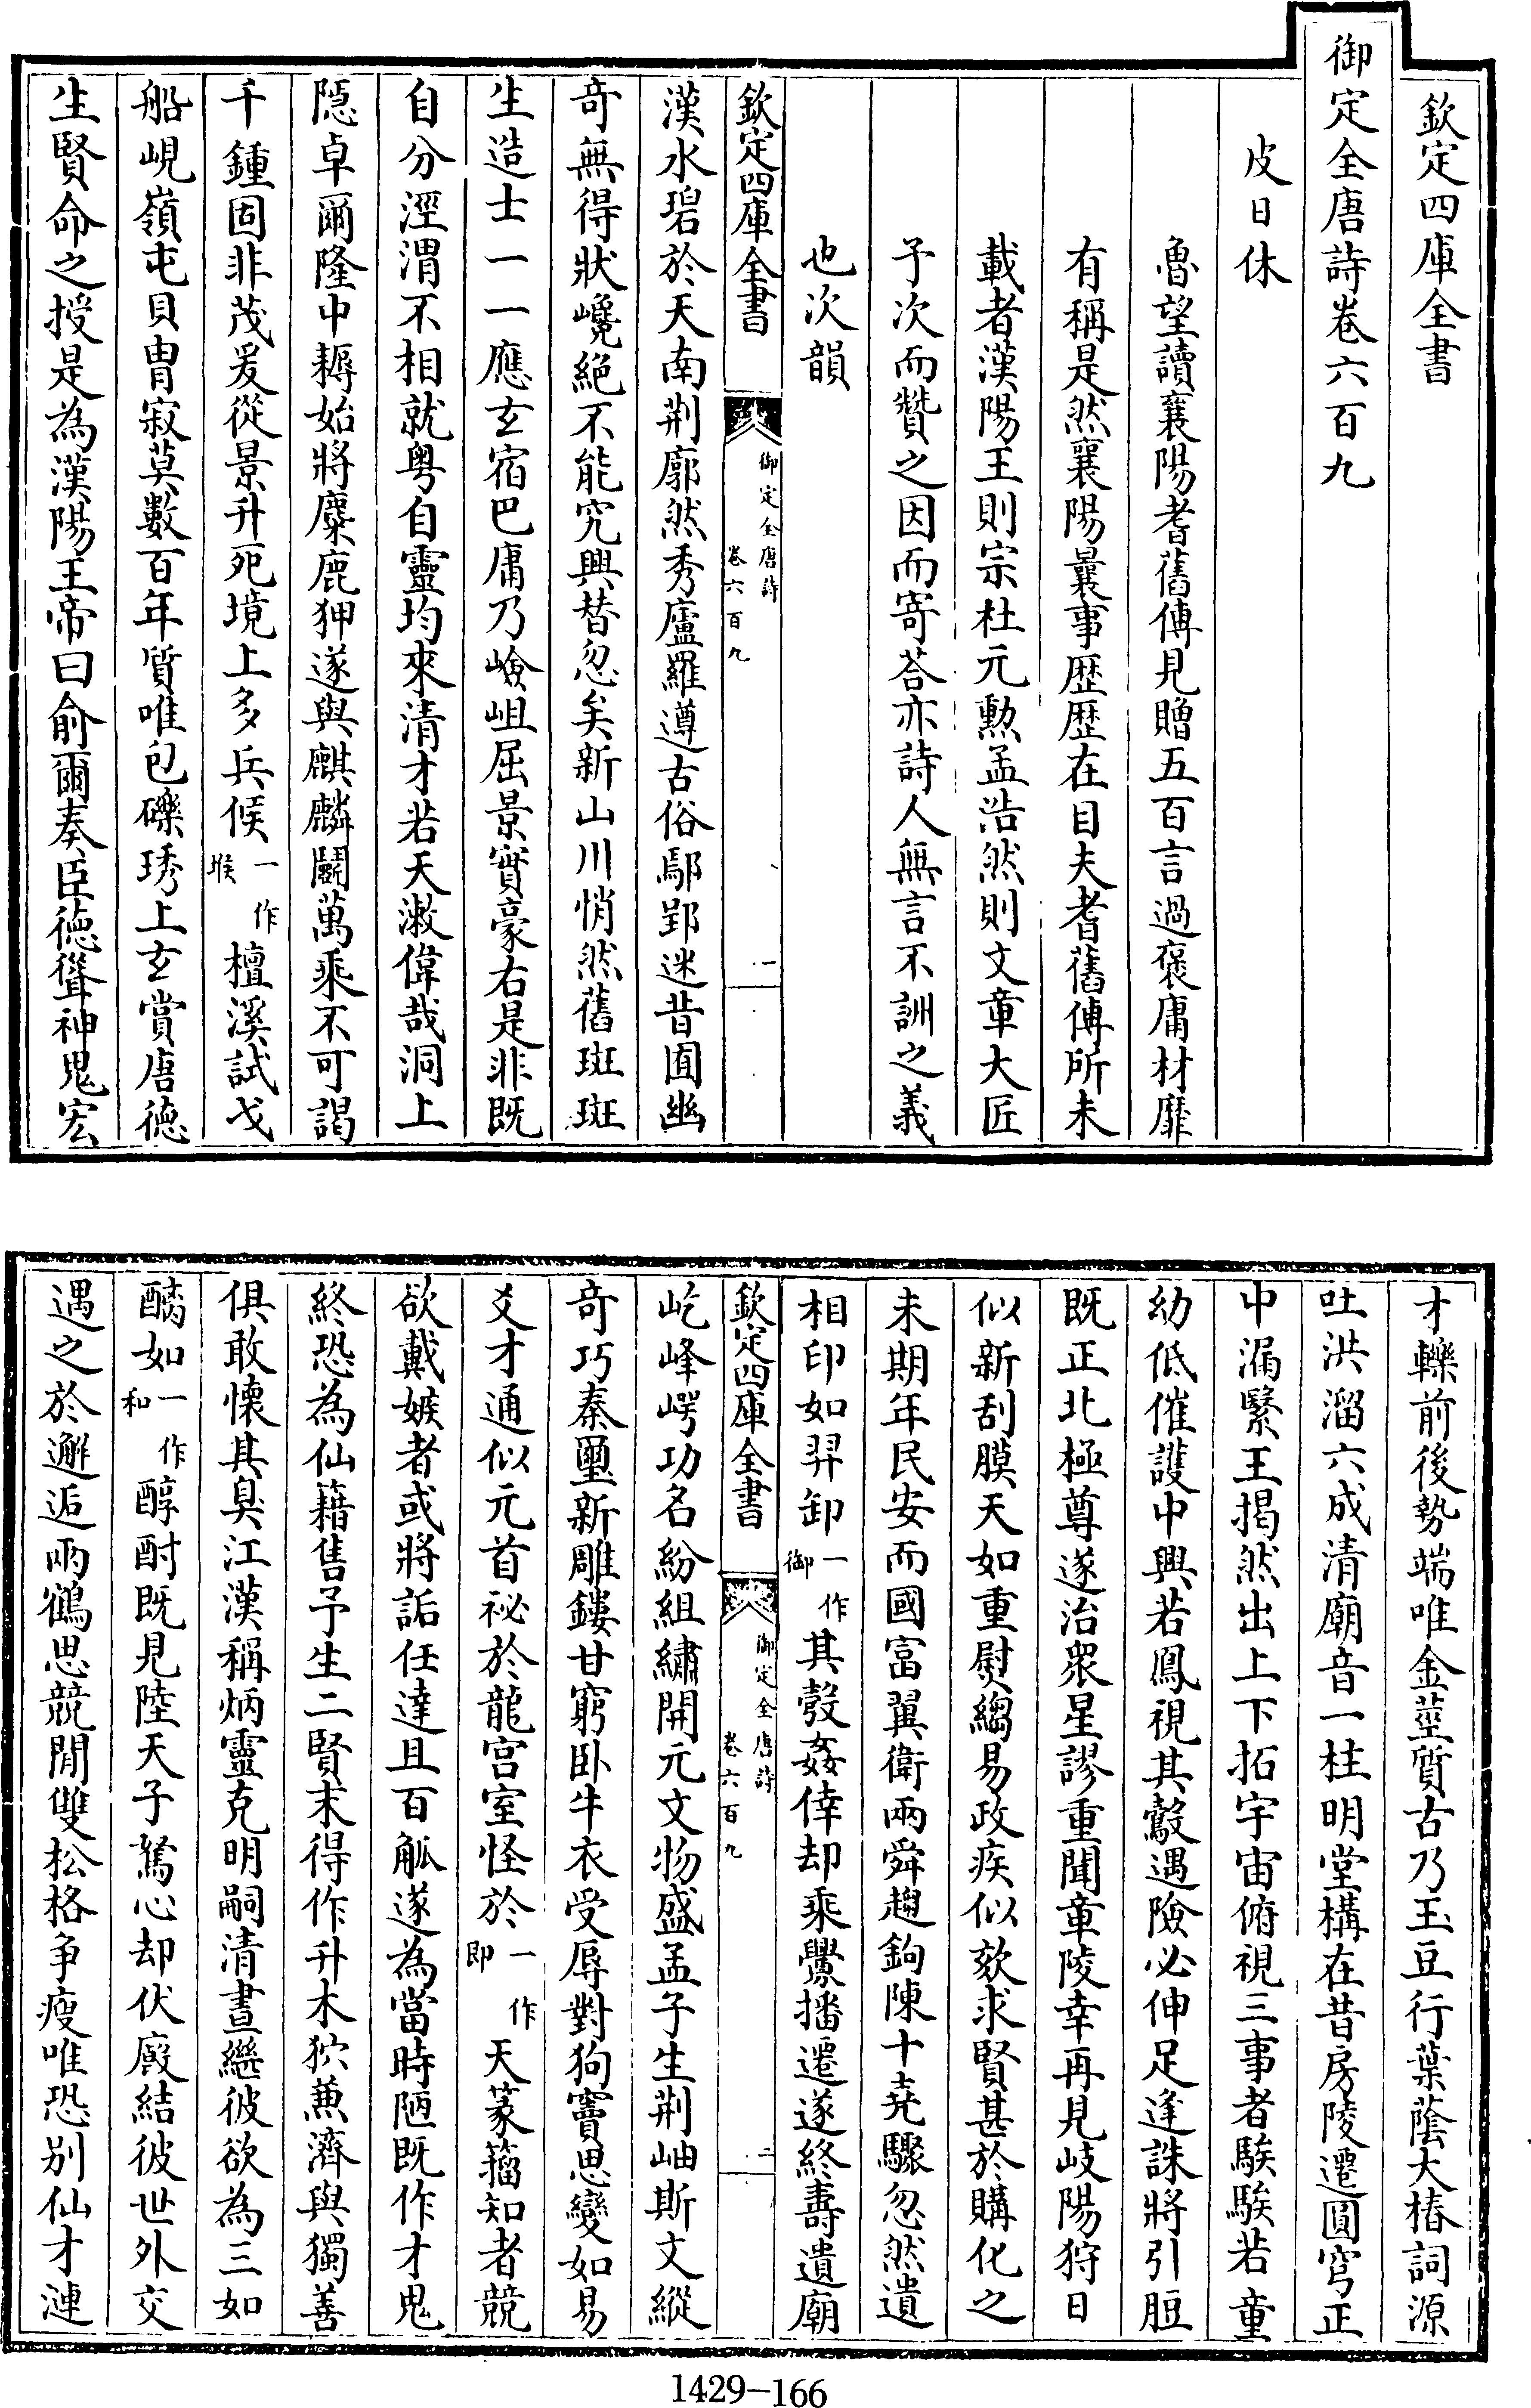 欽定四庫全書
御定全唐詩卷六百九
皮日休
魯望讀襄陽耆舊傳見贈五百言過褒庸材靡
有稱是然襄陽曩事歴歴在目夫耆舊傳所未
載者漢陽王則宗社元勲孟浩然則文章大匠
予次而贊之因而寄荅亦詩人無言不詶之義
也次韻
欽定四庫全書
御定全唐詩
卷六百九
一
漢水碧於天南荆廓然秀廬羅遵古俗鄢郢迷昔囿幽
奇無得狀巉絶不能究興替忽矣新山川悄然舊斑斑
生造士一一應玄宿巴庸乃嶮岨屈景實豪右是非既
自分涇渭不相就粤自靈均來清才若天漱偉哉洞上
隱卓爾隆中耨始將麋鹿狎遂與麒麟鬭萬乘不可謁
千鍾固非茂爰從景升死境上多兵候一作堠檀溪試戈
船峴嶺屯貝胄寂莫數百年質唯包礫琇上玄賞唐德
生賢命之授是為漢陽王帝曰俞爾奏巨德聳神鬼宏
才轢前後勢端唯金莖質古乃玉豆行葉蔭大椿詞源
吐洪溜六成清廟音一柱明堂構在昔房陵遷圓穹正
中漏繄王揭然出上下拓宇宙俯視三事者騃騃若童
幼低催護中興若鳳視其鷇遇險必伸足逢誅將引脰
既正北極尊遂治衆星謬重聞章陵幸再見岐陽狩日
似新刮膜天如重熨縐易政疾似欬求賢甚於購化之
未期年民安而國富翼衛兩舜趨鉤陳十堯驟忽然遺
相印如羿卸一作御其彀姦倖却乘釁播遷遂終壽遺廟
欽定四庫全書
御定全唐詩
卷六百九
二
屹峰崿功名紛組繡開元文物盛孟子生荆岫斯文縱
奇巧秦璽新雕鏤甘窮卧牛衣受辱對狗竇思變如易
爻才通似元首祕於龍宫室怪於一作即天篆籀知者競
欲戴嫉者或將詬任達且百觚遂為當時陋既作才鬼
終恐為仙籍售予生二賢末得作升木狖兼濟與獨善
俱敢懷其臭江漢稱炳靈克明嗣清晝繼彼欲為三如
醨如一作和醇酎既見陸天子駑心却伏廄結彼世外交
遇之於邂逅兩鶴思競閒雙松格争瘦唯恐别仙才漣
1429-166